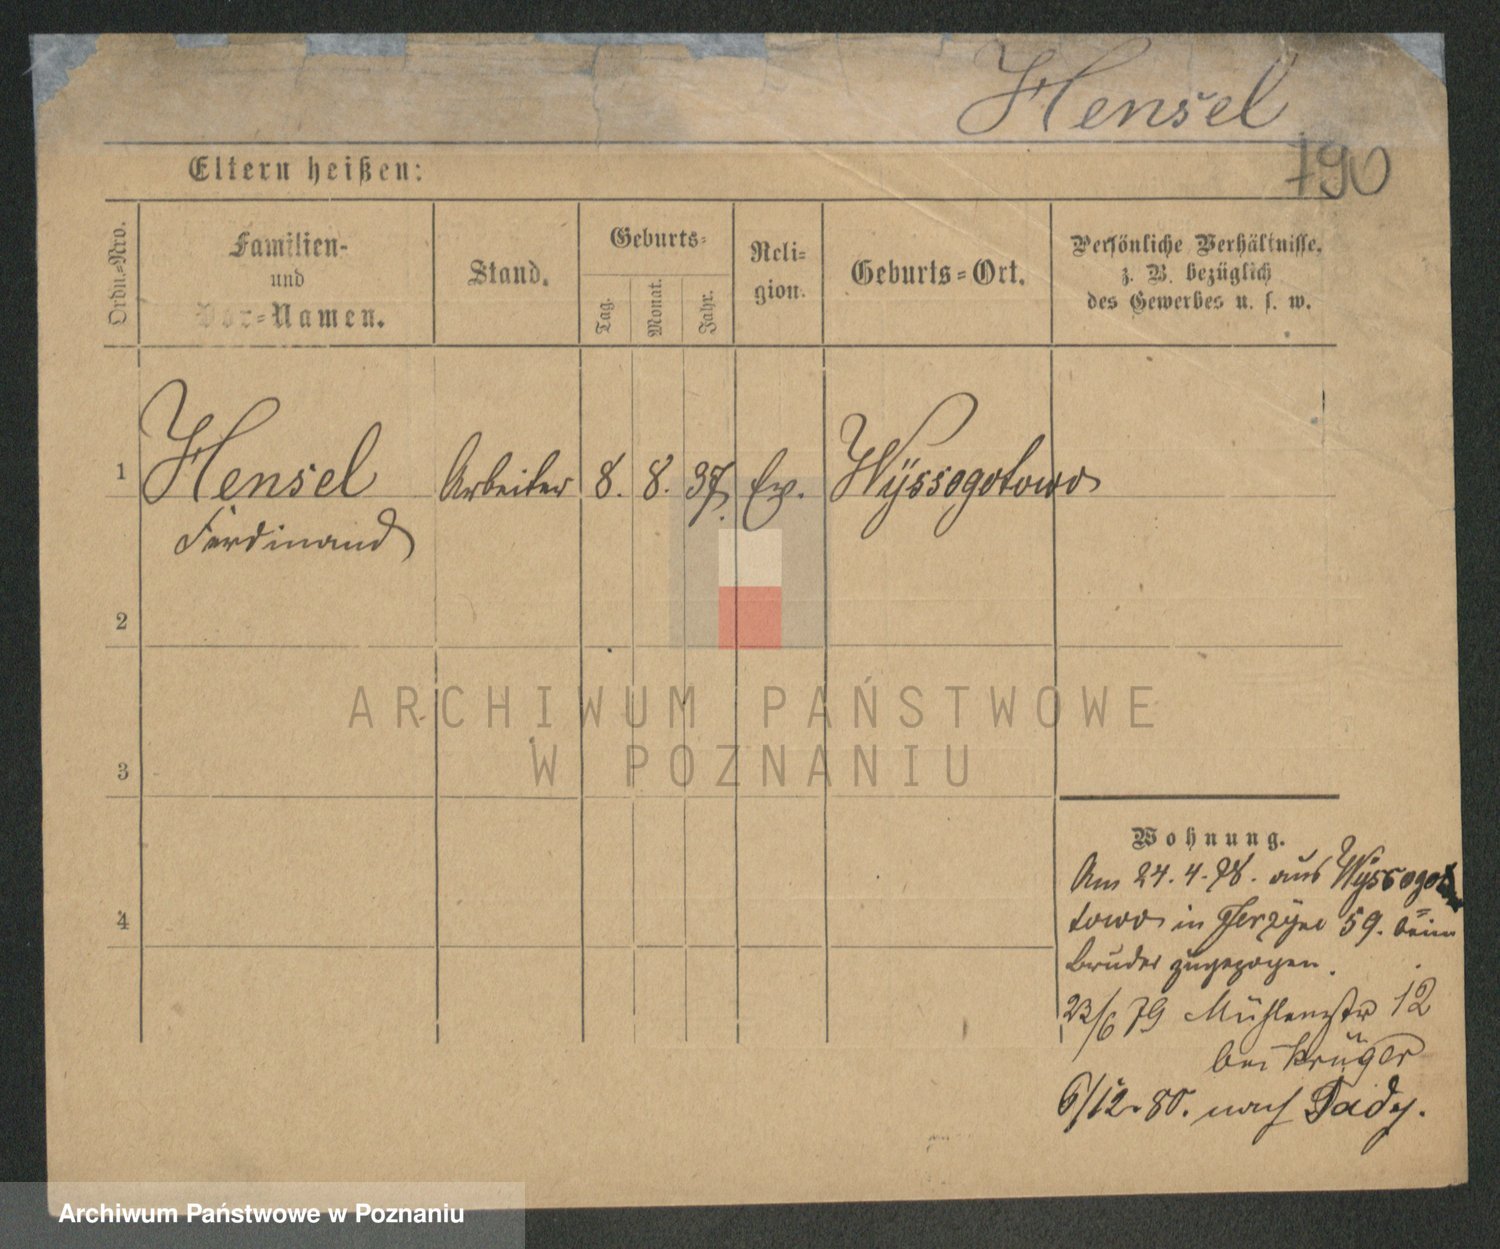 Hensel
790
Eltern heißen:
Ordn.-Nro.
Familien-
und
Vor-Namen.
Stand.
Geburts-
Tag.
Monat.
Jahr.
Reli-
gion.
Geburts-Ort.
Persönliche Verhältnisse,
z. B. bezüglich
des Gewerbes u. s. w.
1
Hensel
Ferdinand
Arbeiter
8.
8.
37.
Ev.
Wÿssogotowo
2
ARCHIWUM PAŃSTWOWE
W POZNANIU
3
4
Wohnung.
Am 24.4.78. aus Wÿssogot
towo in Jerzÿce 59. beim
Bruder zugezogen.
23/6 79 Mühlenstr 12
bei Krüger
6/12.80. nach
Archiwum Państwowe w Poznaniu